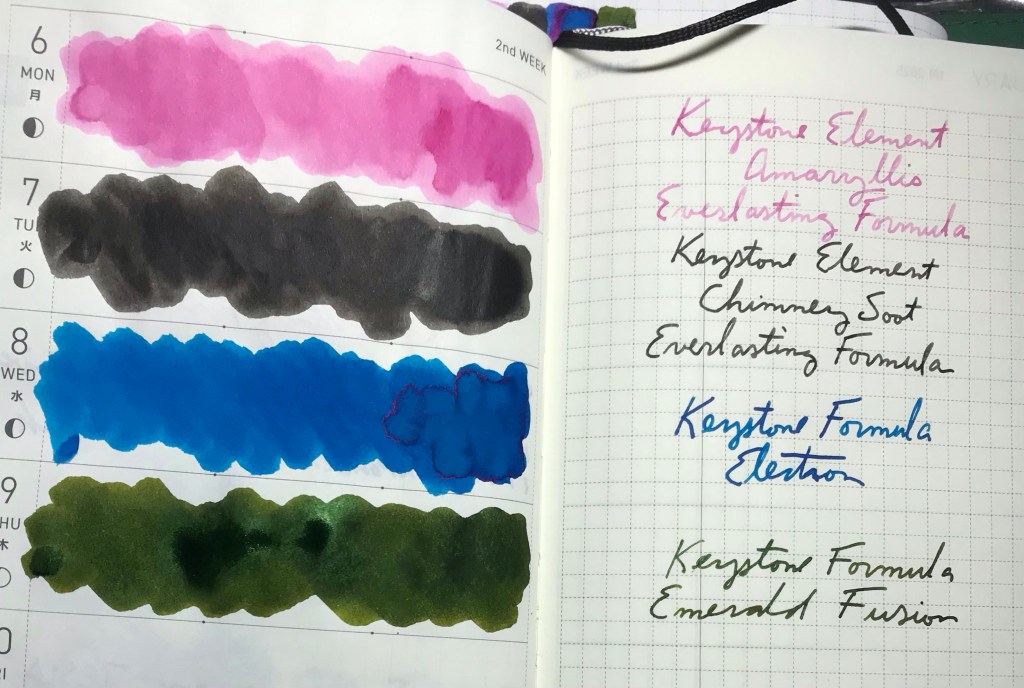 2nd WEEK
6
MON
月
7
TU
火
8
WED
水
9
HU
木
0
RI
Keystone Element
Amaryllis
Everlasting Formula
Keystone Element
Chimney Soot
Everlasting Formula
Keystone Formula
Electron
Keystone Formula
Emerald Fusion